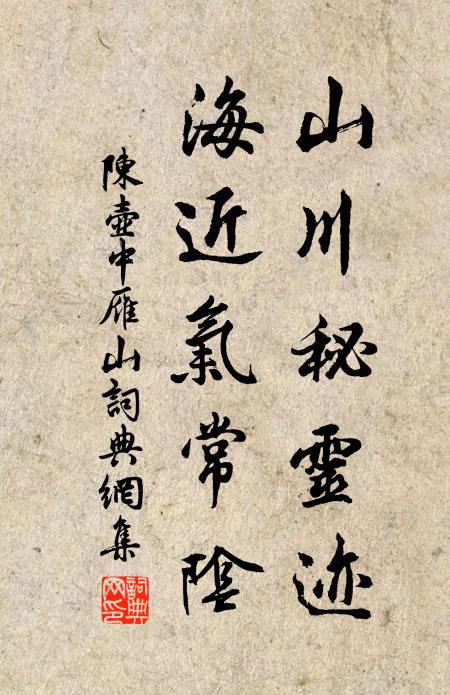 山川秘靈迹
海近氣常陰
陳壺中雁山詞典網集
詞典
网印